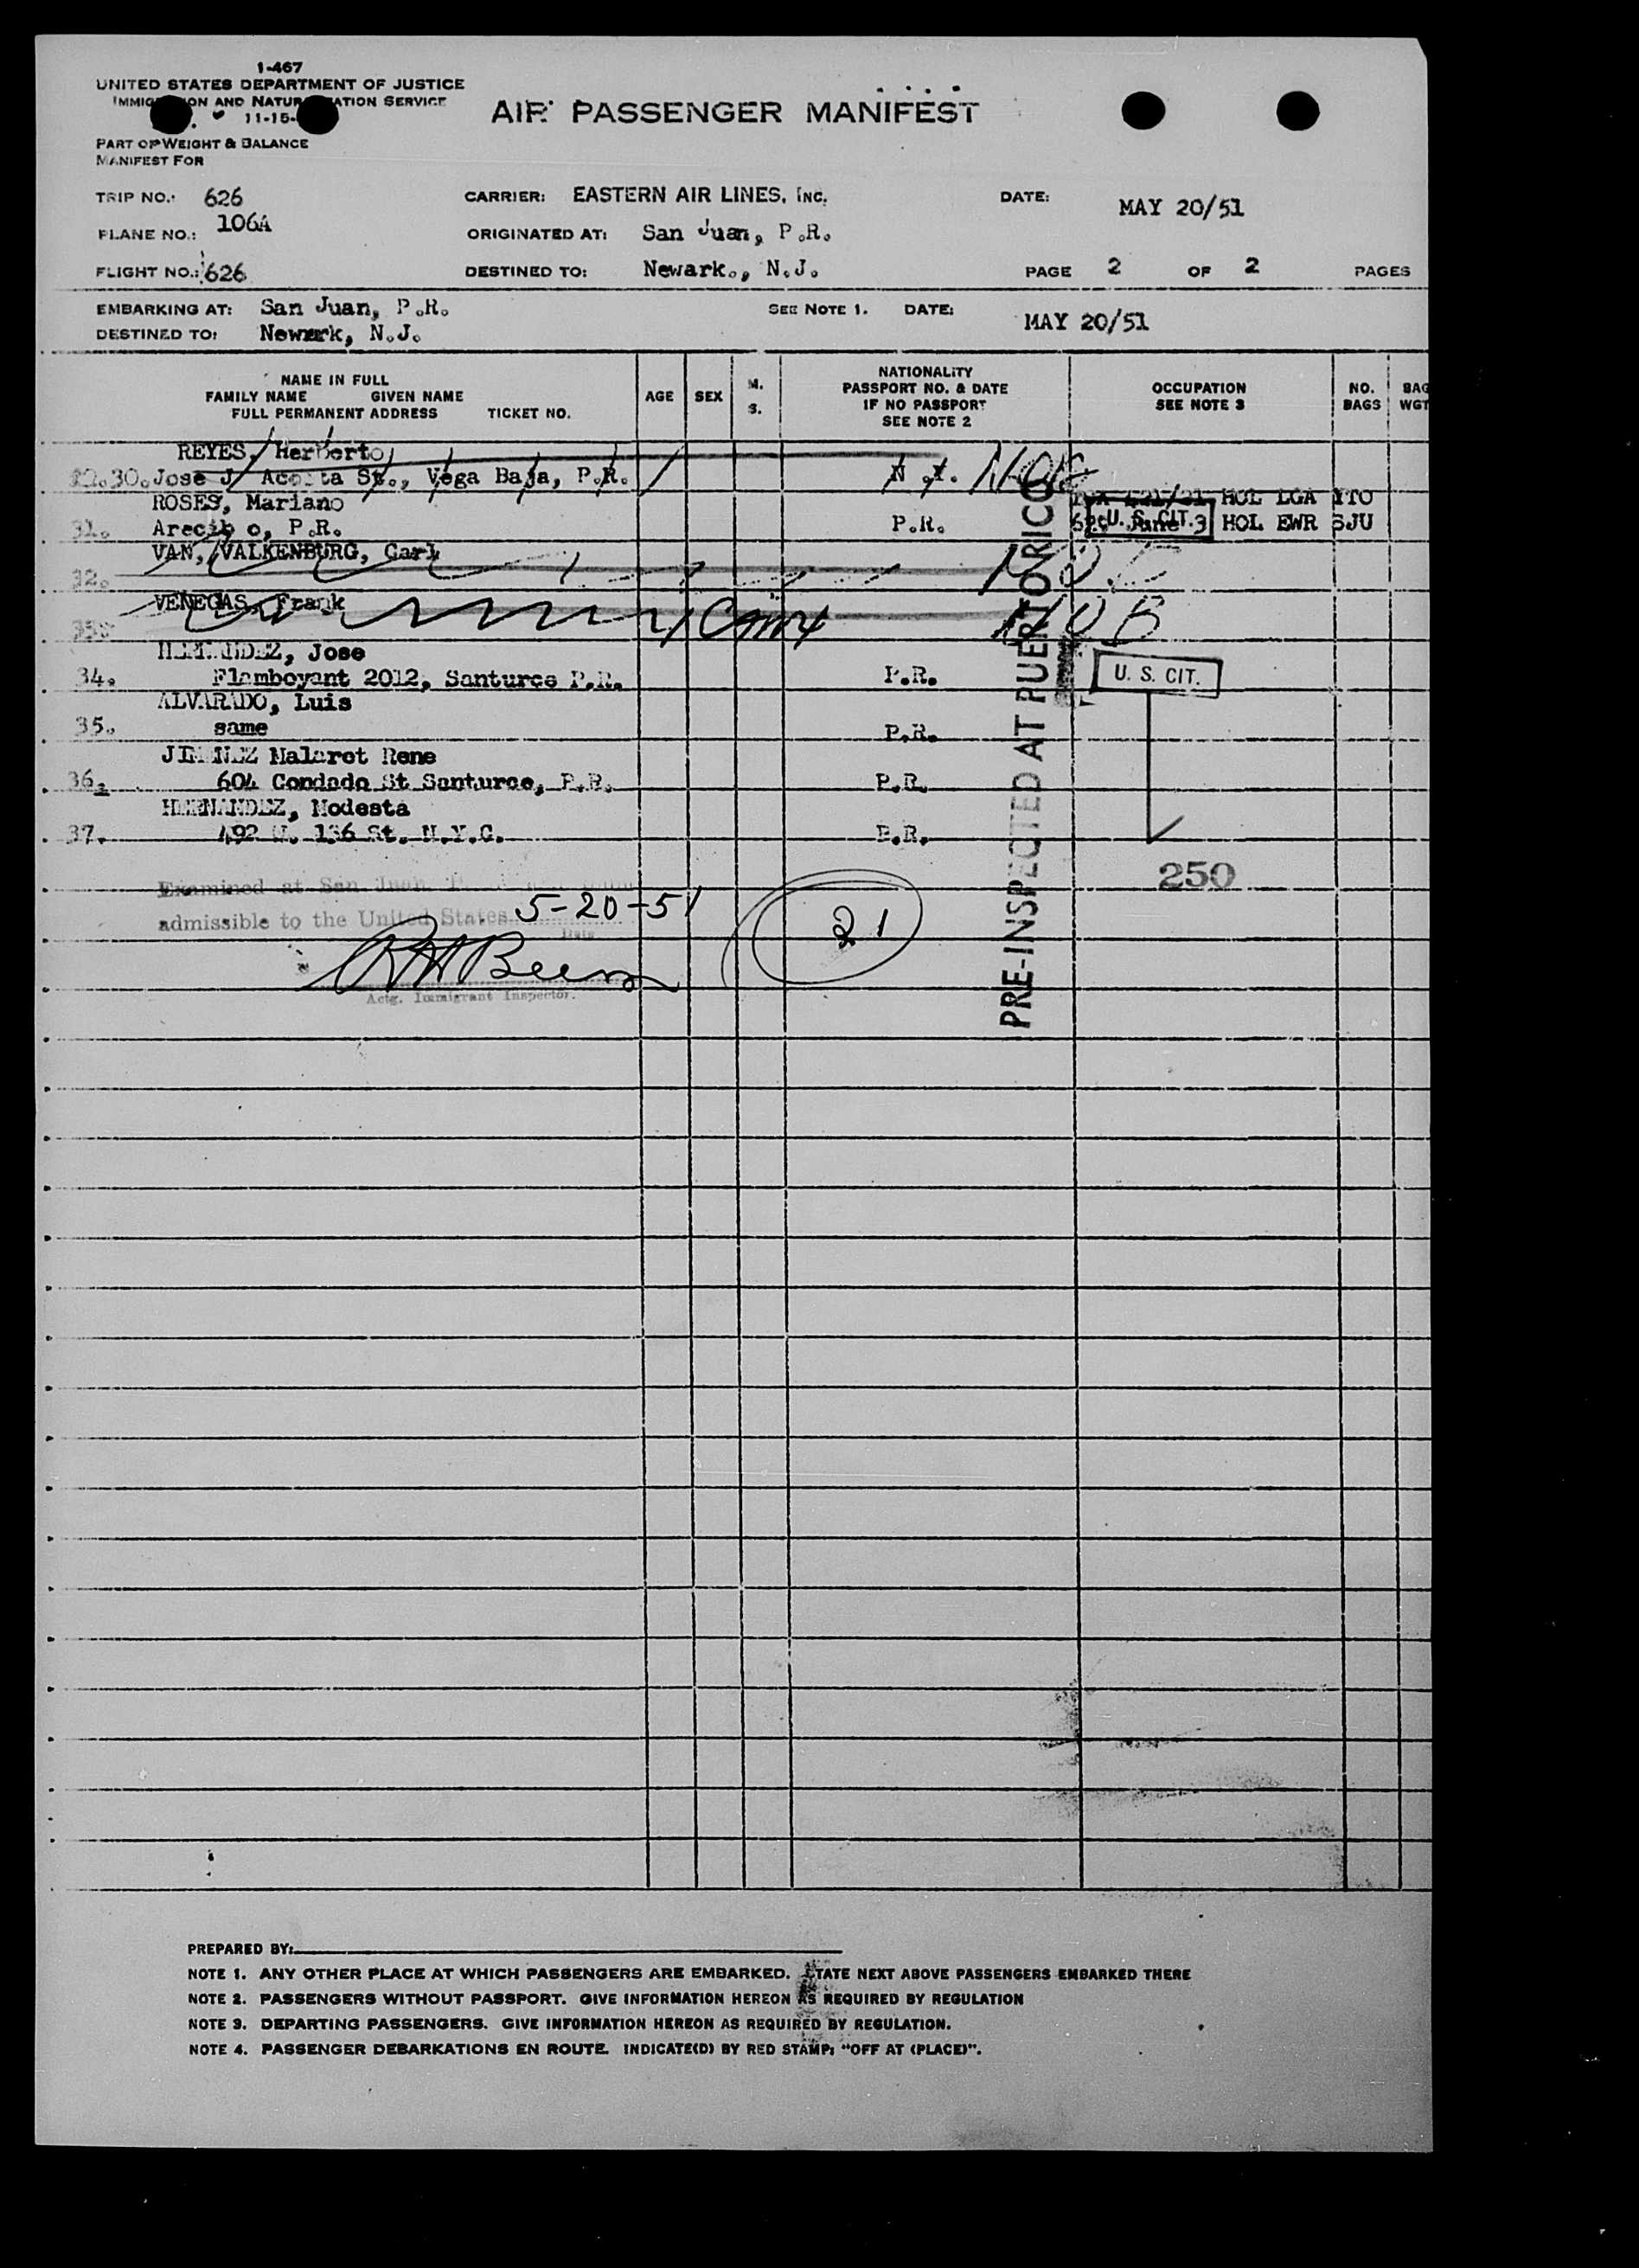 1-467
UNITED STATES DEPARTMENT OF JUSTICE
IMMIG ON AND NATUR ATION SERVICE
11-15-
AIR PASSENGER MANIFEST
PART OF WEIGHT & BALANCE
MANIFEST FOR
TRIP NO.: 626 CARRIER: EASTERN AIR LINES, INC. DATE: MAY 20/51
PLANE NO.: 106A ORIGINATED AT: San Juan, P.R.
FLIGHT NO.: 626 DESTINED TO: Newark., N.J. PAGE 2 OF 2 PAGES
EMBARKING AT: San Juan, P.R. SEE NOTE 1. DATE: MAY 20/51
DESTINED TO: Newark, N.J.
NAME IN FULL
FAMILY NAME GIVEN NAME
FULL PERMANENT ADDRESS TICKET NO.
AGE SEX M. S.
NATIONALITY
PASSPORT NO. & DATE
IF NO PASSPORT
SEE NOTE 2
OCCUPATION
SEE NOTE 3
NO. BAGS
BAG WGT
REYES, Herberto
30. Jose J Acosta St., Vega Baja, P.R.
ROSES, Mariano HOL LGA YTO
31. Arecib o, P.R. P.R. U. S. CIT. June 3 HOL EWR SJU
VAN, VALKENBURG, Carl
32.
VENEGAS, Frank NOB
HERNANDEZ, Jose
34. Flamboyant 2012, Santurce P.R. P.R. U. S. CIT.
ALVARADO, Luis
35. same P.R.
JIMINEZ Malaret Rene
36. 604 Condado St Santurce, P.R. P.R.
HERNANDEZ, Modesta
37. 492 W. 136 St. N.Y.C. P.R.
250
PRE-INSPECTED AT PUERTO RICO
Examined at San Juan, P.
admissible to the United States 5-20-51
Date
21
Actg. Immigrant Inspector.
PREPARED BY:
NOTE 1. ANY OTHER PLACE AT WHICH PASSENGERS ARE EMBARKED. STATE NEXT ABOVE PASSENGERS EMBARKED THERE
NOTE 2. PASSENGERS WITHOUT PASSPORT. GIVE INFORMATION HEREON AS REQUIRED BY REGULATION
NOTE 3. DEPARTING PASSENGERS. GIVE INFORMATION HEREON AS REQUIRED BY REGULATION.
NOTE 4. PASSENGER DEBARKATIONS EN ROUTE. INDICATE(D) BY RED STAMP: "OFF AT (PLACE)".